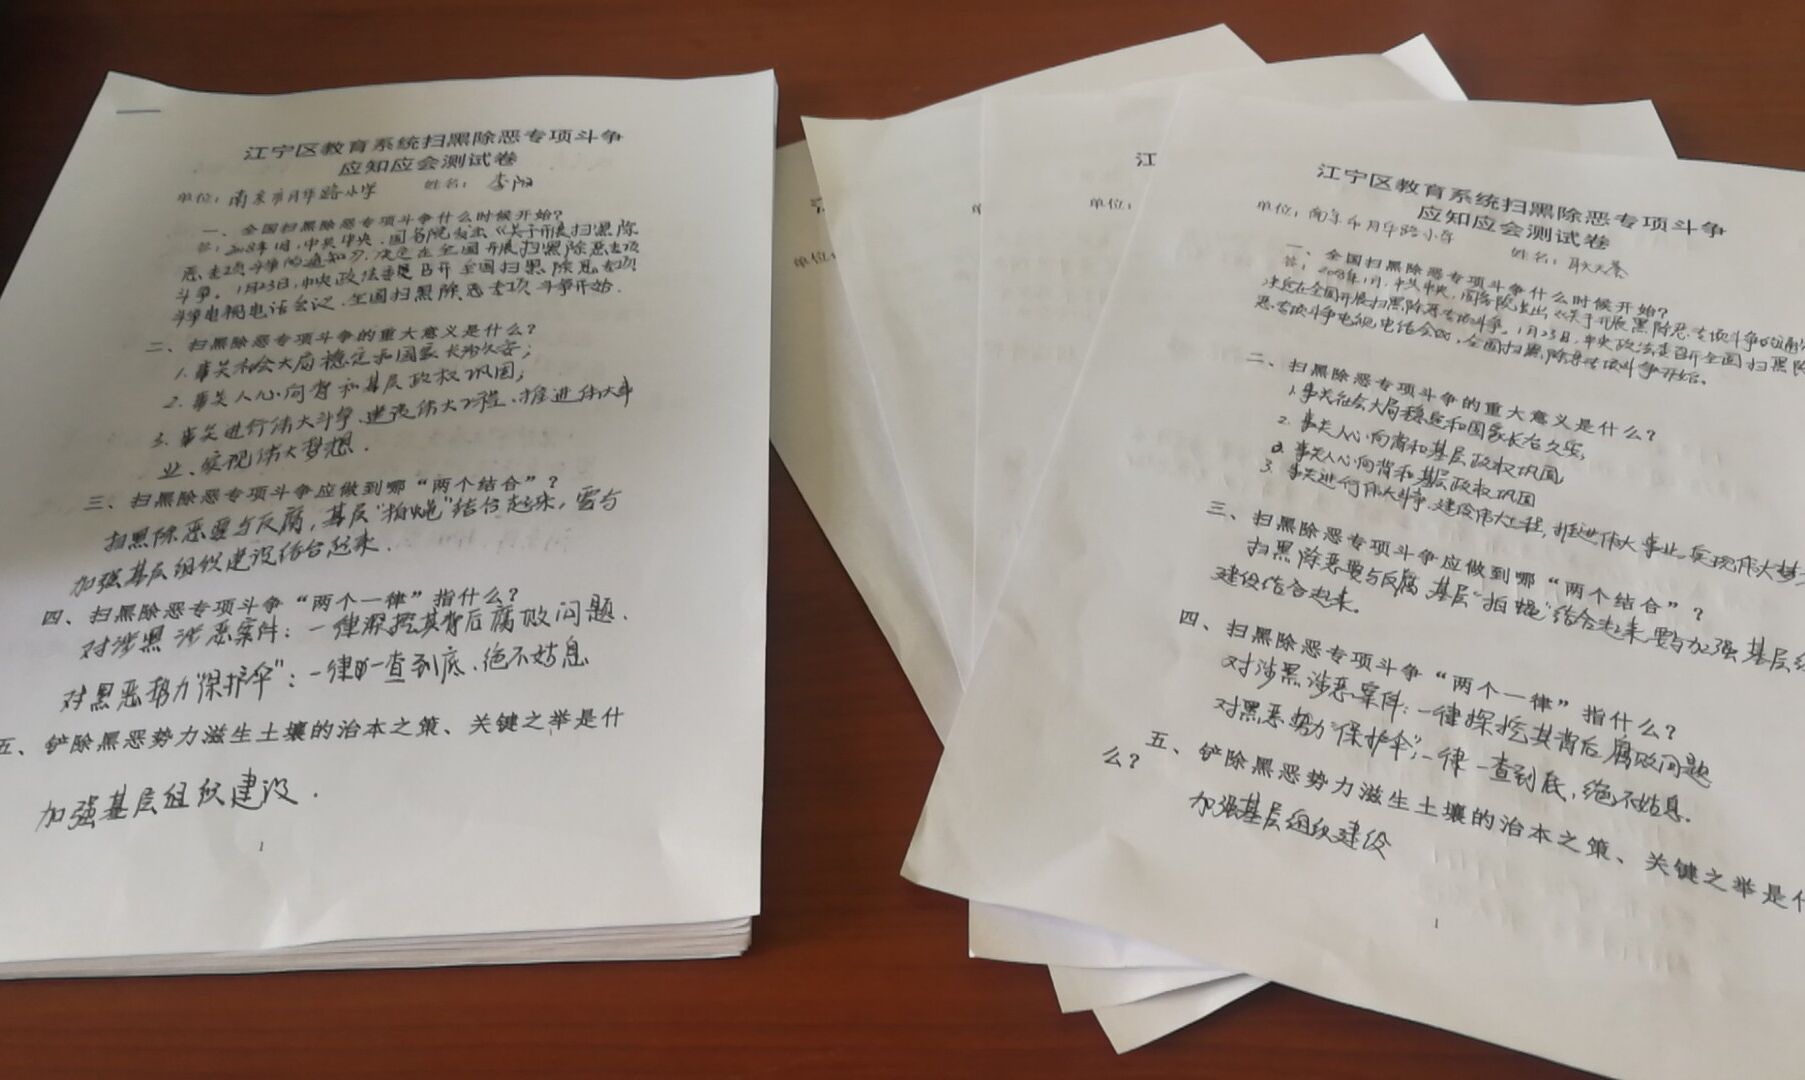 江宁区教育系统扫黑除恶专项斗争
应知应会测试卷
单位：南京市月华路小学 姓名：李阳
一、全国扫黑除恶专项斗争什么时候开始？
答：2018年1月，中共中央、国务院发出《关于开展扫黑除
恶专项斗争的通知》，决定在全国开展扫黑除恶专项
斗争。1月23日，中央政法委召开全国扫黑除恶专项
斗争电视电话会议，全国扫黑除恶专项斗争开始。
二、扫黑除恶专项斗争的重大意义是什么？
1.事关社会大局稳定和国家长治久安；
2.事关人心向背和基层政权巩固；
3.事关进行伟大斗争、建设伟大工程、推进伟大事
业、实现伟大梦想.
三、扫黑除恶专项斗争应做到哪“两个结合”？
扫黑除恶要与反腐，基层“拍蝇”结合起来，需与
加强基层组织建设结合起来.
四、扫黑除恶专项斗争“两个一律”指什么？
对涉黑涉恶案件：一律深挖其背后腐败问题.
对黑恶势力“保护伞”：一律一查到底、绝不姑息
五、铲除黑恶势力滋生土壤的治本之策、关键之举是什
加强基层组织建设.
1
江
单位：
单位：
江宁区教育系统扫黑除恶专项斗争
应知应会测试卷
单位：南京市月华路小学 姓名：
一、全国扫黑除恶专项斗争什么时候开始？
答：2018年1月，中共中央、国务院发出《关于开展黑除恶专项斗争的通
决定在全国开展扫黑除恶专项斗争。1月23日，中央政法委召开全国扫黑除
恶专项斗争电视电话会议，全国扫黑除恶专项斗争开始。
二、扫黑除恶专项斗争的重大意义是什么？
1.事关社会大局稳定和国家长治久安，
2.事关人心向背和基层政权巩固，
事关人心向背和基层政权巩固
3.事关进行伟大斗争，建设伟大工程，推进伟大事业，实现伟大梦
三、扫黑除恶专项斗争应做到哪“两个结合”？
扫黑除恶要与反腐 基层“拍蝇”结合起来，要与加强基层
建设结合起来。
四、扫黑除恶专项斗争“两个一律”指什么？
对涉黑涉恶案件：一律探挖其背后腐败问题
对黑恶势力“保护伞”：一律一查到底，绝不姑息.
五、铲除黑恶势力滋生土壤的治本之策、关键之举是什
么？
加强基层组织建设
1